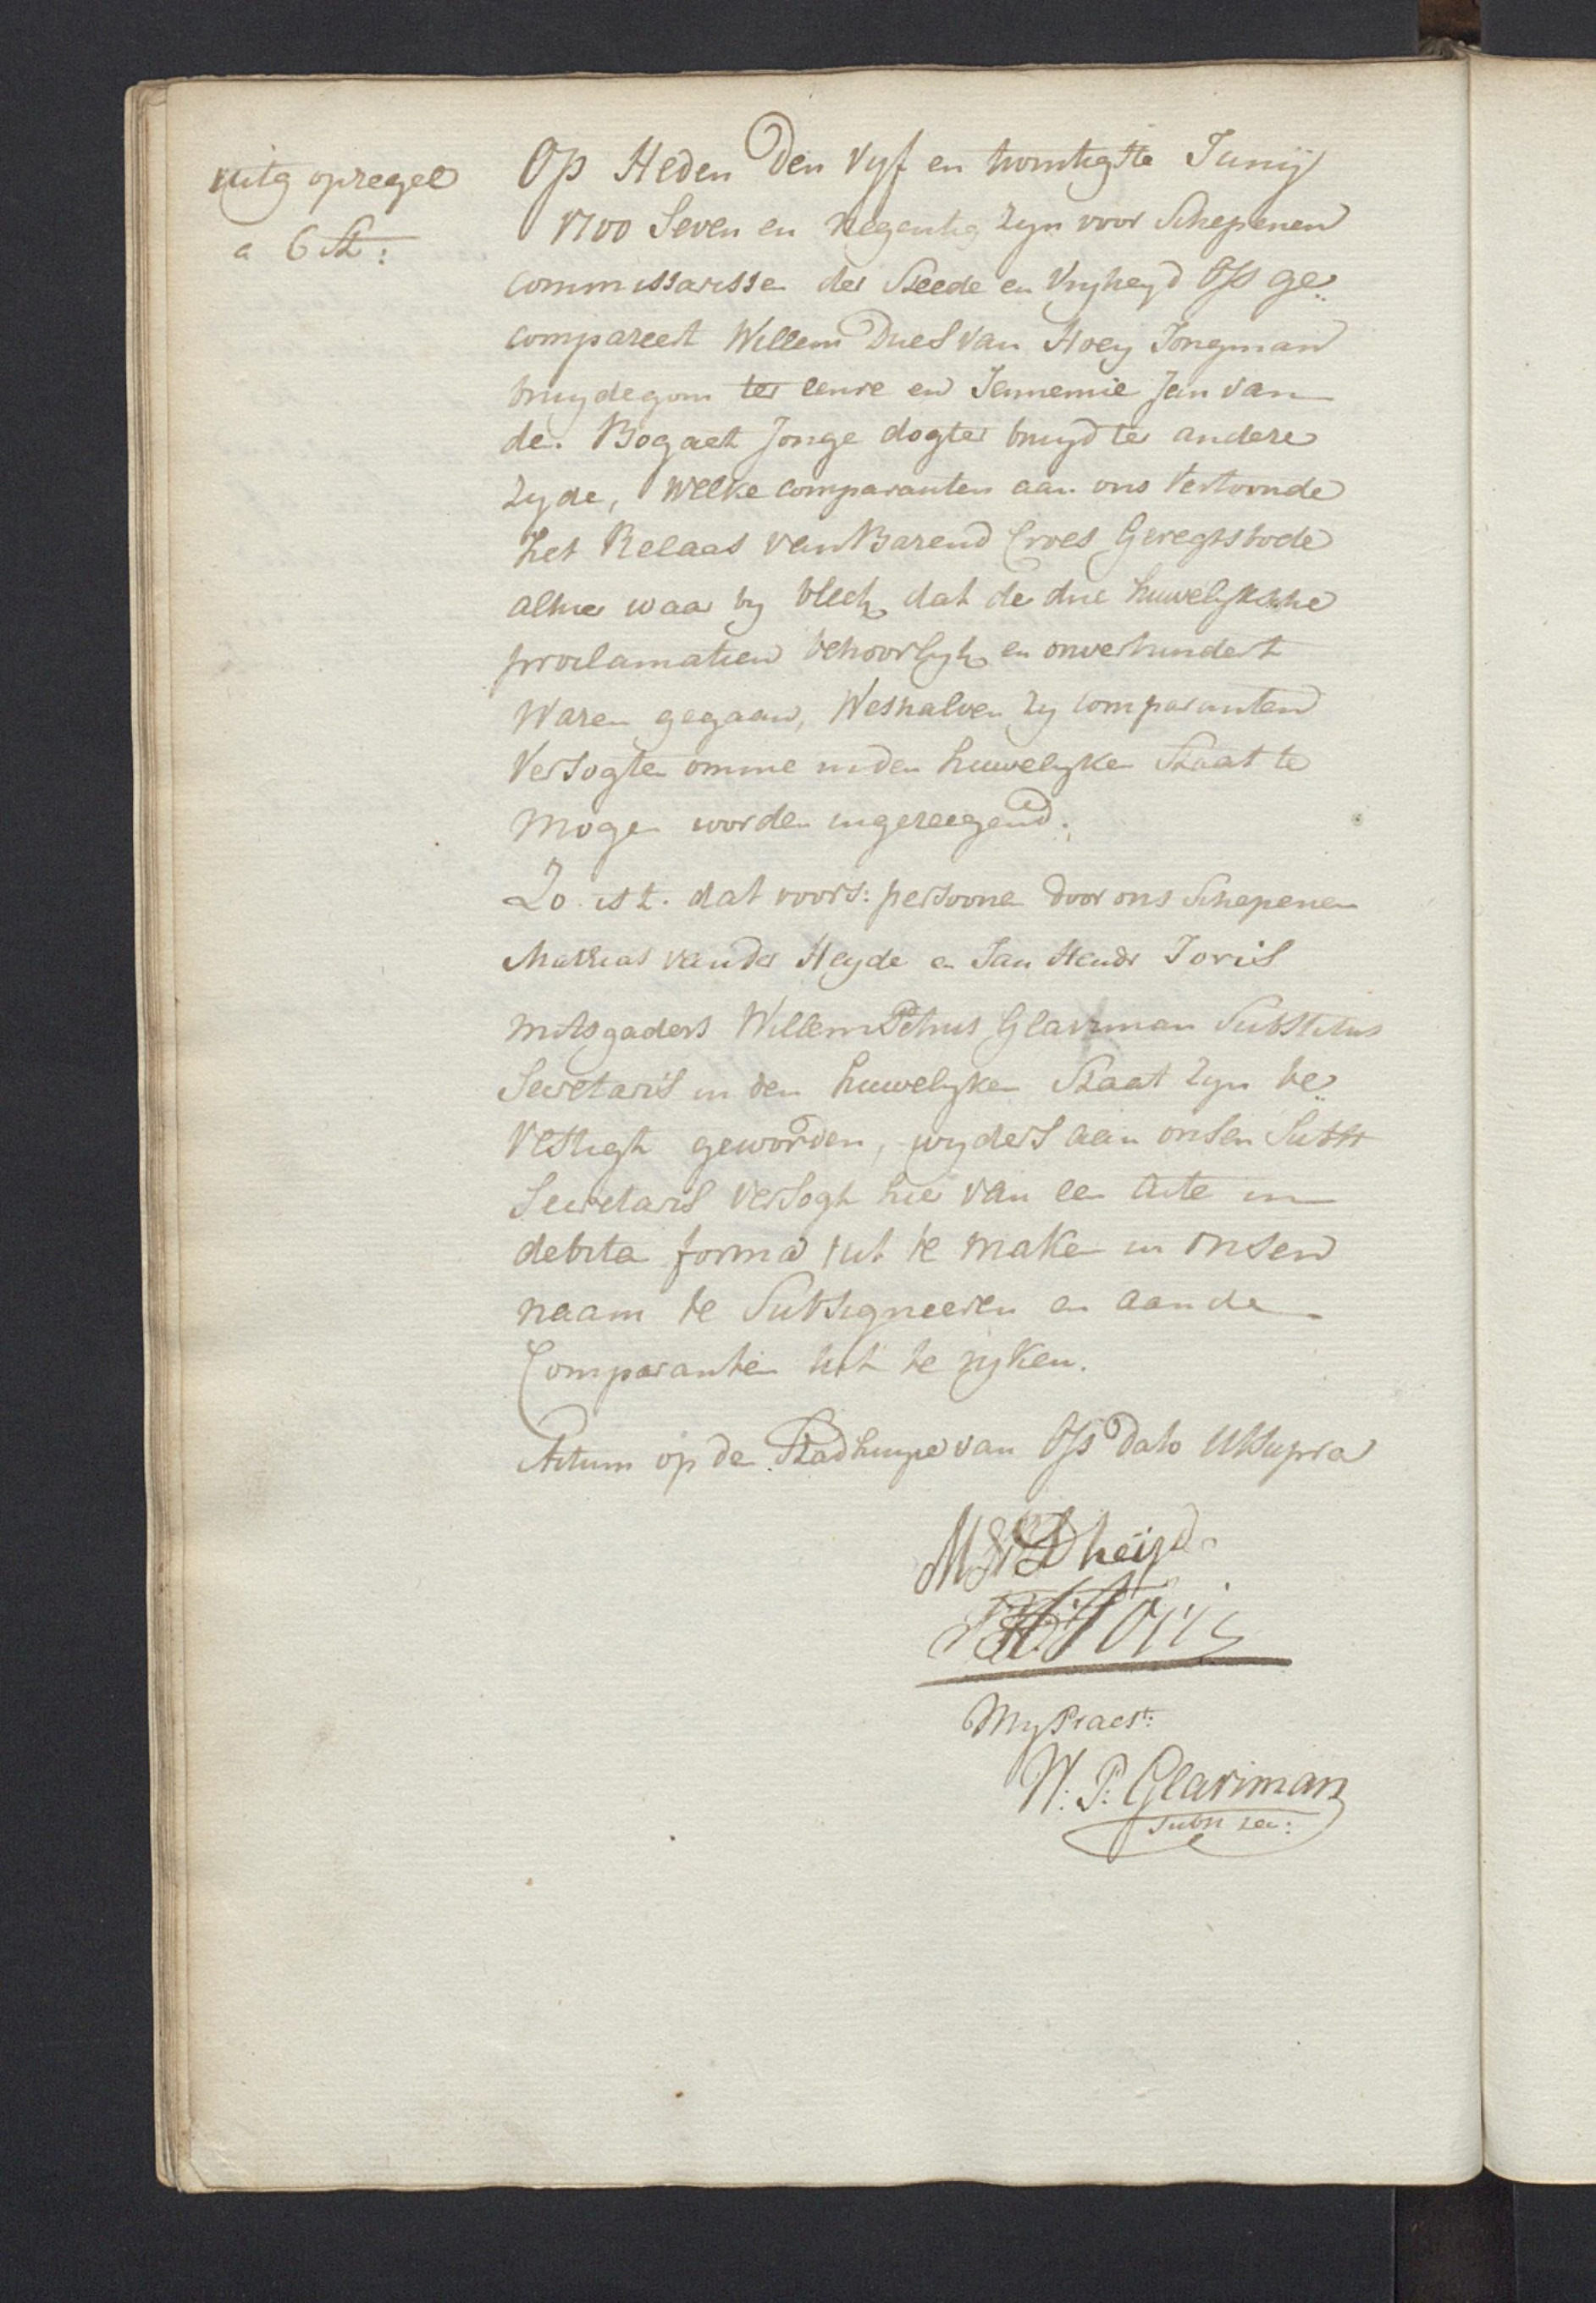 uitg op zegel
a 6 St:
Op Heden Den Vyf en twintigste Junij
1700 Seven en Negentig zyn voor Schepenen
commissarissen der Steede en Vryheyd Oss ge„
compareert Willem Dries van Hoey Jongman
bruydegom ter eenre en Jennemie Jan van
de. Bogaet Jonge dogter bruyd ter andere
zyde, Welke comparanten aan ons Vertoonde
het Relaas van Barend Croes Geregtsbode
alhier waar by bleek dat de drie huwelyksche
proclamatien behoorlyk en onverhindert
Waren gegaan, Weshalven zy comparanten
Versogten omme in den huwelyken Staat te
Mogen worden ingezeegend.
Zo ist. dat voors: persoonen door ons Schepenen
Mathias van der Heyde en Jan Hendr Joris
mitsgaders Willem Petrus Glaviman Substitus
Secretaris in den huwelyken Staat zyn be„
Vestigt geworden, wyders aan onsen Subst
Secretaris versogt hier van een acte in
debita forma uit te maken in onsen
naam te Subsigneeren en aan de
Comparanten uit te ryken.
Actum op de Stadhuyse van Oss Dato Utsupra
M V D heijde
J H Joris
My Praest:
W: P: Glaviman
Subst sec: